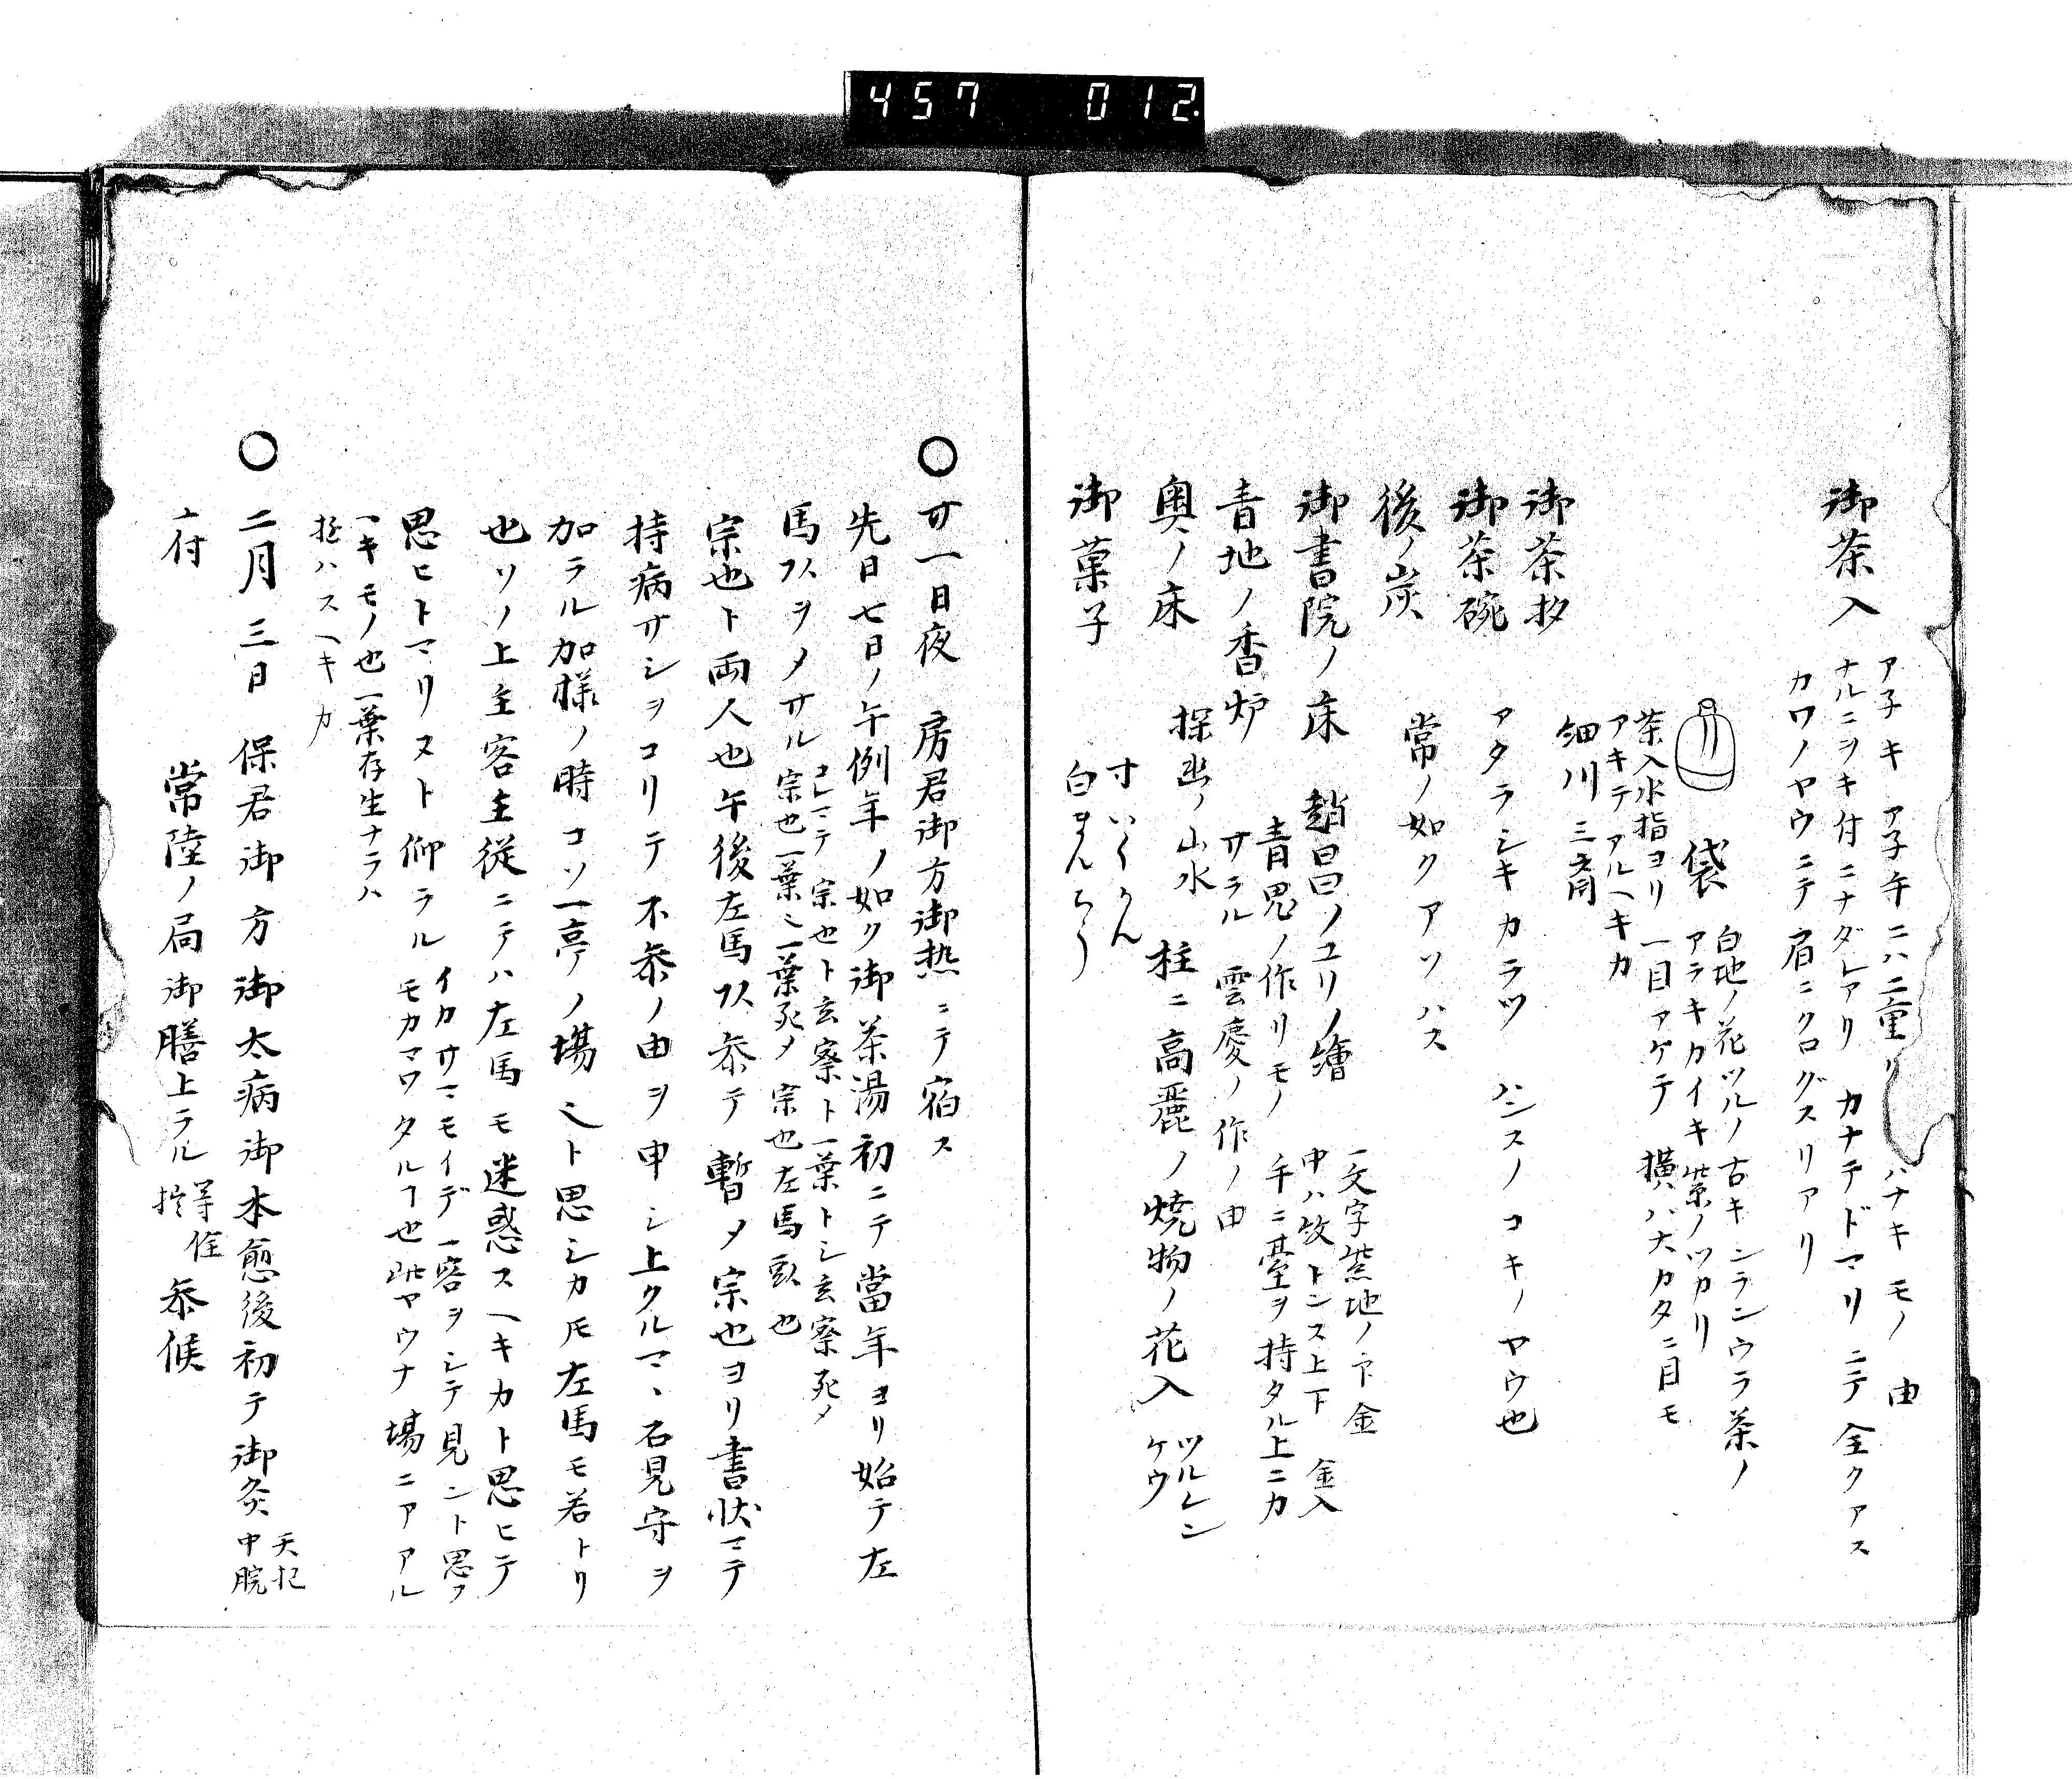 457 012.
御茶入
アネキ アネ午ニハ二重リ ハナキモノ由
ナルニヲキ付ニナダレアリ カナテドマリニテ全クアス
カワノヤウニテ肩ニクログスリアリ
袋
白地ノ花ツルノ古キンランウラ茶ノ
アラキカイキ紫ノツカリ
茶入水指ヨリ一目アケテ 横ハ大カタニ目モ
アキテアルヘキカ
御茶杓 細川三斎
御茶碗 アタラシキカラツ ハンスノコキノヤウ也
後ノ炭 常ノ如クアソハス
御書院ノ床 趙昌ノユリノ繪
一文字紫地ノ下金
中ハ紋トンス上下 金入
青地ノ香炉
青鬼ノ作リモノ 手ニ臺ヲ持タル上ニカ
サラル 雲慶ノ作ノ由
奥ノ床 探幽ノ山水 柱ニ高麗ノ焼物ノ花入
ツルレン
ケウ
御菓子
寸いくわん
白まんちう
○廿一日夜 房君御方御熱ニテ宿ス
先日七日ノ午例年ノ如ク御茶湯初ニテ當年ヨリ始テ左
馬頭ヲメサル
コレマテ宗也ト玄察ト一葉トシ玄察死メ
宗也一葉ニ一葉死メ宗也左馬頭也
宗也ト両人也午後左馬頭参テ暫メ宗也ヨリ書状マテ
持病サシヲコリテ不参ノ由ヲ申シ上クルマヽ石見守ヲ
加ラル加様ノ時コソ一亭ノ場ヘト思シカトモ左馬モ若トリ
也ソノ上主客主従ニテハ左馬モ迷惑スヘキカト思ヒテ
思ヒトマリヌト仰ラル
イカサマモイデ一客ヲシテ見ント思フ
モカマワタルコト也此ヤウナ場ニアル
ヘキモノ也一葉存生ナラハ
ハスヘキカ
○二月三日 保君御方御太病御本愈後初テ御灸
天枢
中脘
常陸ノ局御膳上テル
参候